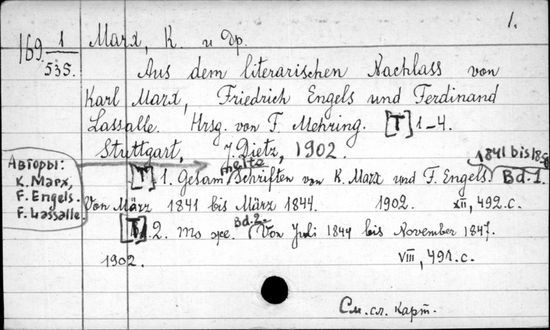 1.
169 1/535.
Marx, K. и др.
Aus dem literarischen Nachlass von
Karl Marx, Friedrich Engels und Ferdinand
Lassalle. Hrsg. von F. Mehring. [T] 1-4.
Stuttgart, Dietz, 1902.
Авторы:
К. Маркс,
F. Engels.
F. Lassalle.
[T] 1. Gesammelte Schriften von K. Marx und F. Engels 1841 bis 1850 Bd. 1.
Von März 1841 bis März 1844. 1902. XII, 492 с.
[T] 2. То же. Bd. 2. Von Juli 1844 bis November 1847.
1902. VIII, 491 с.
См. сл. карт.